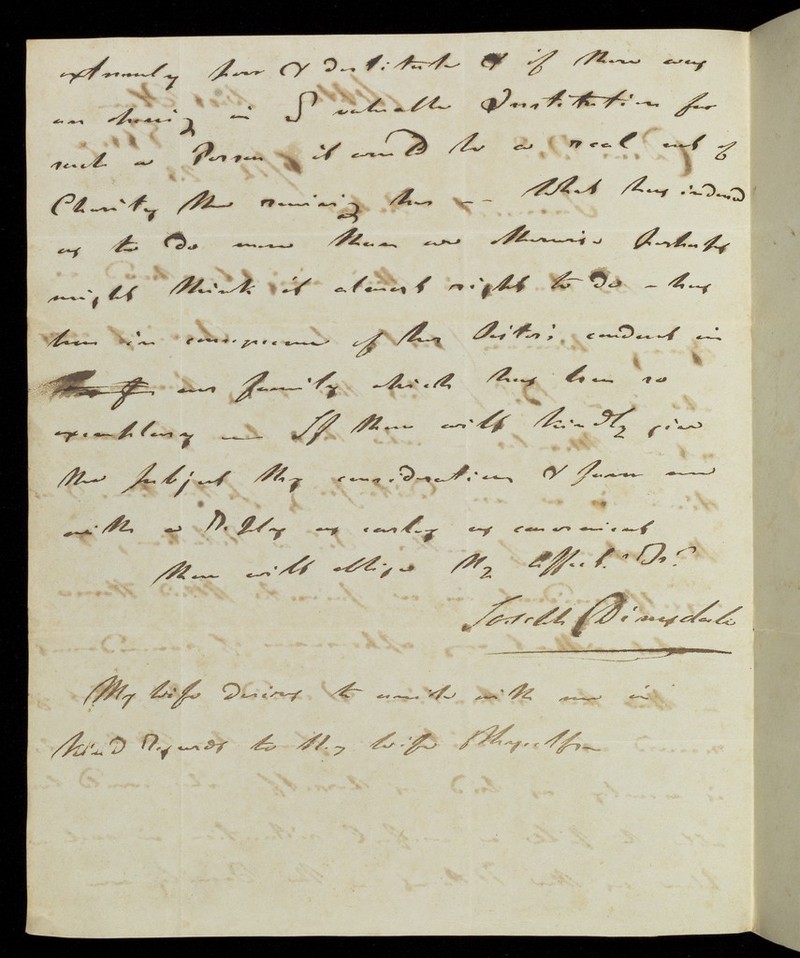 extremely poor & destitute & if there was
an opening in yr valuable Institution for
such a Person it would be a real act of
Charity the receiving her -- What has induced
us to do more than we otherwise perhaps
might think it almost right to do - has
been in consequence of her Sister's conduct in
our family which has been so
exemplary If thou wilt kindly give
the subject thy consideration & favor me
with a Reply as early as convenient
thou wilt oblige thy affect. Fr.d
Joseph Dimsdale
My wife desires to unite with me in
kind Regards to thy wife & thyself